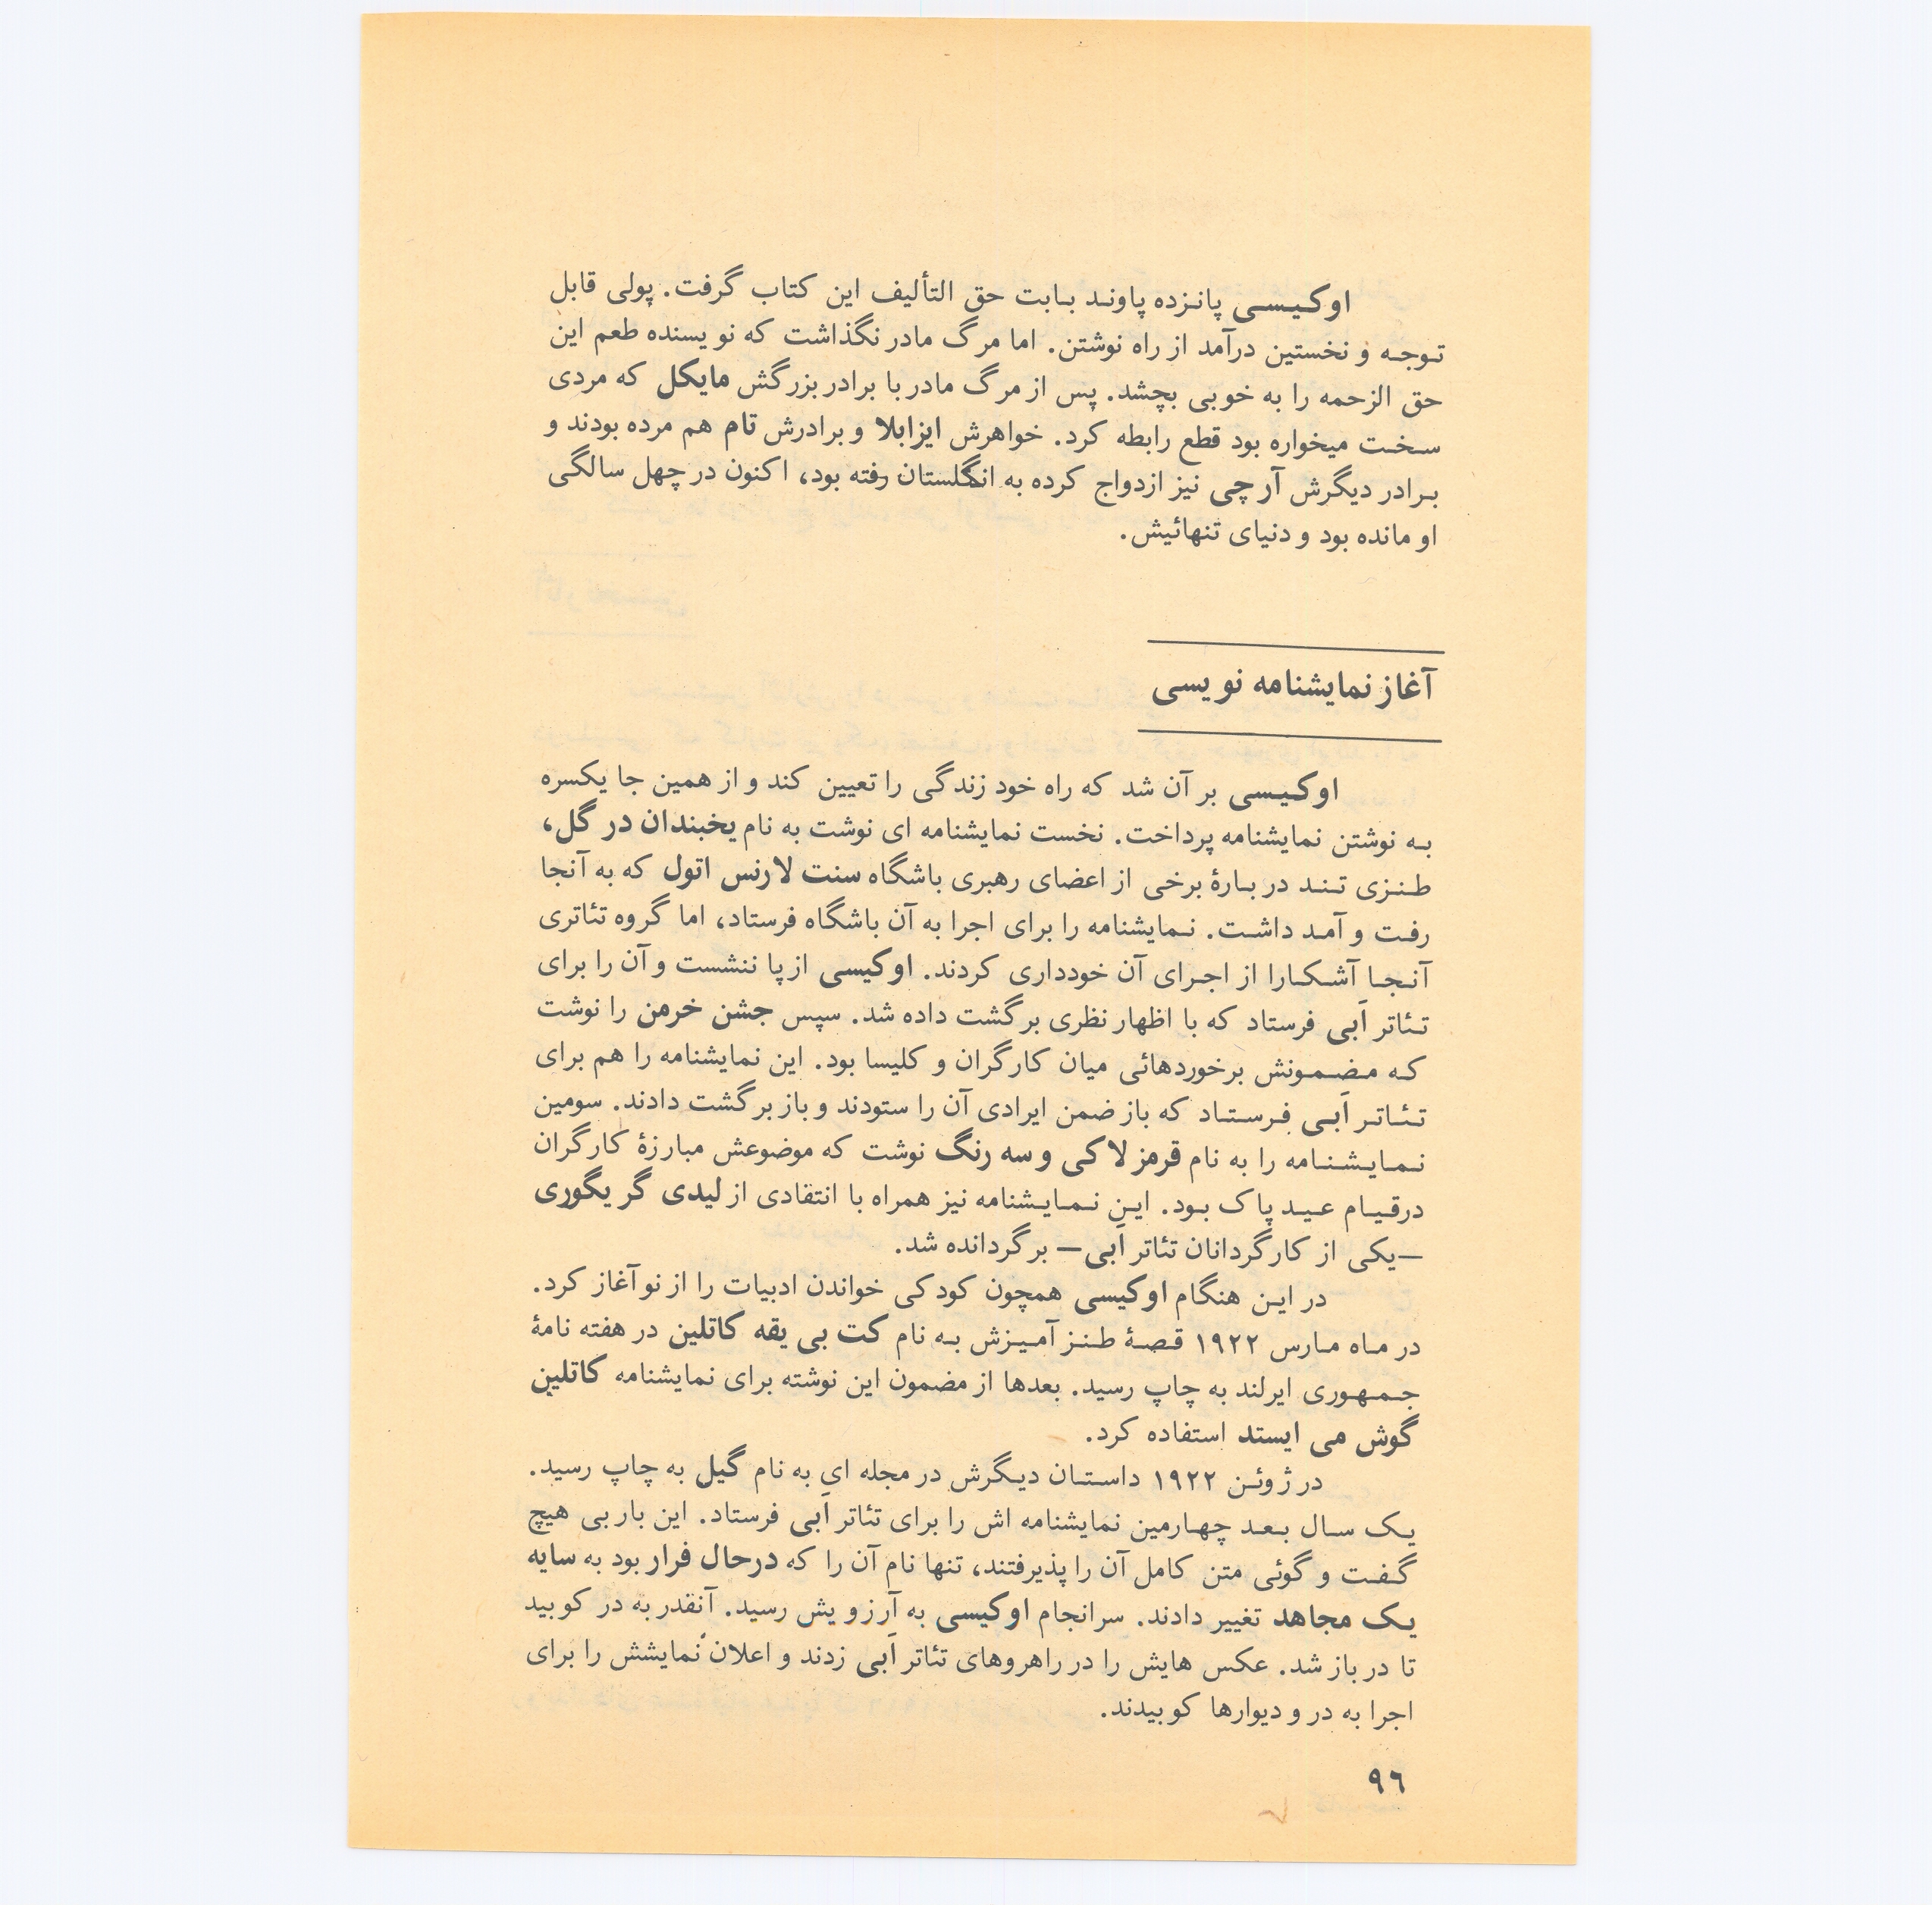 اوکیسی پانزده پاوند بابت حق التألیف این کتاب گرفت. پولی قابل
توجه و نخستین درآمد از راه نوشتن. اما مرگ مادر نگذاشت که نویسنده طعم این
حق الزحمه را به خوبی بچشد. پس از مرگ مادر با برادر بزرگش مایکل که مردی
سخت میخواره بود قطع رابطه کرد. خواهرش ایزابلا و برادرش تام هم مرده بودند و
برادر دیگرش آرچی نیز ازدواج کرده به انگلستان رفته بود، اکنون در چهل سالگی
او مانده بود و دنیای تنهائیش.
آغاز نمایشنامه نویسی
اوکیسی بر آن شد که راه خود زندگی را تعیین کند و از همین جا یکسره
به نوشتن نمایشنامه پرداخت. نخست نمایشنامه ای نوشت به نام یخبندان در گل،
طنزی تند در بارهٔ برخی از اعضای رهبری باشگاه سنت لارنس اتول که به آنجا
رفت و آمد داشت. نمایشنامه را برای اجرا به آن باشگاه فرستاد، اما گروه تئاتری
آنجا آشکارا از اجرای آن خودداری کردند. اوکیسی از پا ننشست و آن را برای
تئاتر اَبی فرستاد که با اظهار نظری برگشت داده شد. سپس جشن خرمن را نوشت
که مضمونش برخوردهائی میان کارگران و کلیسا بود. این نمایشنامه را هم برای
تئاتر اَبی فرستاد که باز ضمن ایرادی آن را ستودند و باز برگشت دادند. سومین
نمایشنامه را به نام قرمز لاکی و سه رنگ نوشت که موضوعش مبارزهٔ کارگران
درقیام عید پاک بود. این نمایشنامه نیز همراه با انتقادی از لیدی گریگوری
—یکی از کارگردانان تئاتر اَبی— برگردانده شد.
در این هنگام اوکیسی همچون کودکی خواندن ادبیات را از نو آغاز کرد.
در ماه مارس ۱۹۲۲ قصهٔ طنز آمیزش به نام کت بی یقه کاتلین در هفته نامهٔ
جمهوری ایرلند به چاپ رسید. بعدها از مضمون این نوشته برای نمایشنامه کاتلین
گوش می ایستد استفاده کرد.
در ژوئن ۱۹۲۲ داستان دیگرش در مجله ای به نام گیل به چاپ رسید.
یک سال بعد چهارمین نمایشنامه اش را برای تئاتر اَبی فرستاد. این بار بی هیچ
گفت و گوئی متن کامل آن را پذیرفتند، تنها نام آن را که درحال فرار بود به سایه
یک مجاهد تغییر دادند. سرانجام اوکیسی به آرزویش رسید. آنقدر به در کوبید
تا در باز شد. عکس هایش را در راهروهای تئاتر اَبی زدند و اعلان نمایشش را برای
اجرا به در و دیوارها کوبیدند.
۹٦